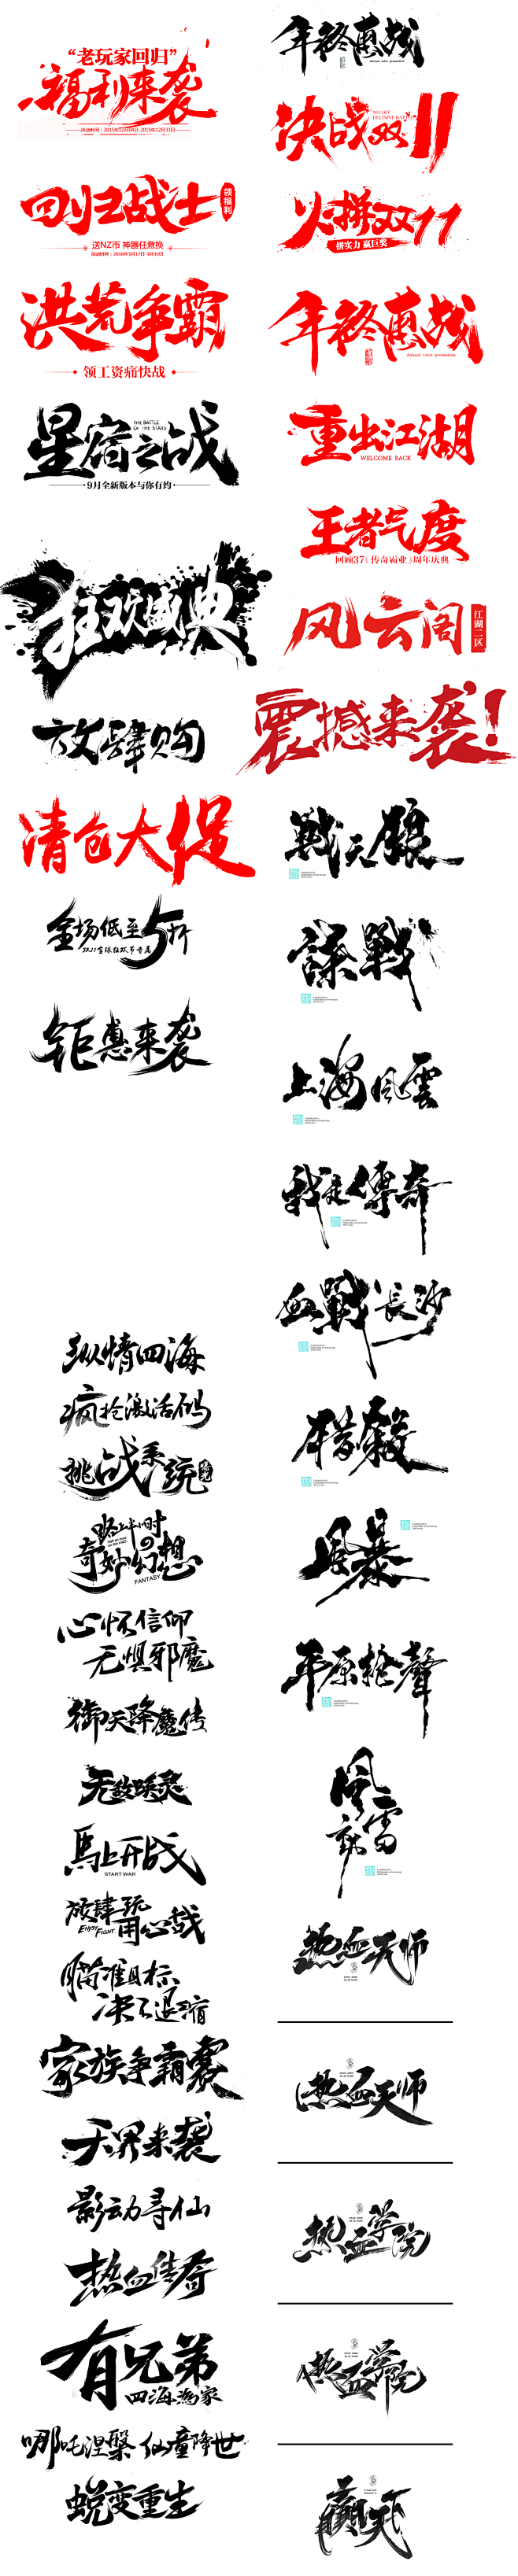 “老玩家回归”
福利来袭
活动时间：2015年12月04日-2015年12月31日
回归战士
领福利
送NZ币 神器任意换
洪荒争霸
领工资痛快战
星宿之战
THE BATTLE
OF THE STARS
9月全新版本与你有约
狂欢盛典
放肆购
清仓大促
全场低至5折
双11全球狂欢节专属
钜惠来袭
纵情四海
疯抢激活码
挑战系统
路上半小时
的
奇妙幻想
FANTASY
心怀信仰
无惧邪魔
御天降魔传
无敌唤灵
馬上开战
START WAR
放肆玩
ENJOY FIGHT
用心战
瞄准目标
决不退缩
家族争霸赛
天界来袭
影动寻仙
热血传奇
有兄弟
四海為家
哪吒涅槃 仙童降世
蜕变重生
年终惠战
Annual sales promotion
决战双11
DECISIVE BATTLE
火拼双11
拼实力 赢巨奖
年终惠战
Annual sales promotion
重出江湖
WELCOME BACK
王者气度
回顾37《传奇霸业》周年庆典
风云阁
江湖二区
震撼来袭！
戰天狼
諜戰
上海風雲
我是傳奇
血戰長沙
猎殺
風暴
平原槍聲
熱血天师
热血天师
热血学院
热血学院